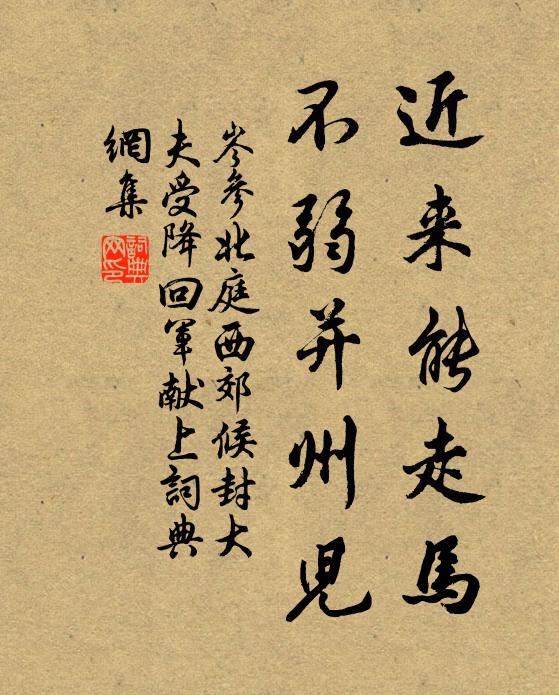 近来能走馬
不弱并州児
岑參北庭西郊候封大
夫受降回軍献上詞典
網集
詞典
网印